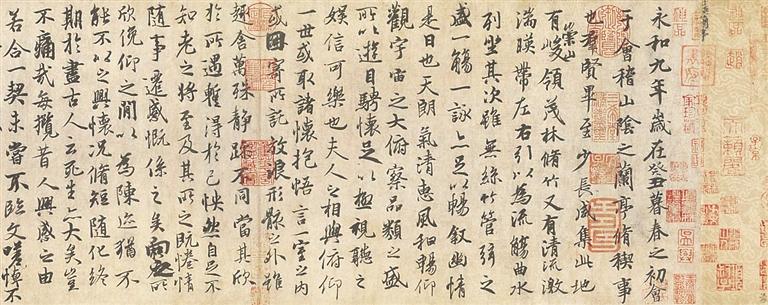 永和九年歲在癸丑暮春之初會
于會稽山陰之蘭亭脩稧事
也羣賢畢至少長咸集此地
有崇山峻領茂林脩竹又有清流激
湍暎帶左右引以為流觴曲水
列坐其次雖無絲竹管弦之
盛一觴一詠亦足以暢叙幽情
是日也天朗氣清惠風和暢仰
觀宇宙之大俯察品類之盛
所以遊目騁懷足以極視聽之
娛信可樂也夫人之相與俯仰
一世或取諸懷抱悟言一室之內
或因寄所託放浪形骸之外雖
趣舍萬殊靜躁不同當其欣
於所遇蹔得於己怏然自足不
知老之將至及其所之既惓情
隨事遷感慨係之矣向之所
欣俛仰之閒以為陳迹猶不
能不以之興懷況脩短隨化終
期於盡古人云死生亦大矣豈
不痛哉每攬昔人興感之由
若合一契未嘗不臨文嗟悼不